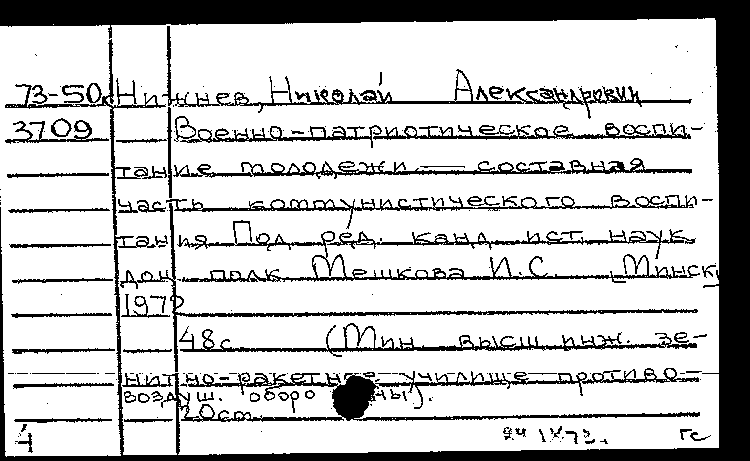 73-50к Нижнев, Николай Александрович
3709 Военно-патриотическое воспи-
тание молодежи — составная
часть коммунистического воспи-
тания Под ред. канд. ист. наук
доц. полк Мешкова И.С. [Минск
1972
48с (Мин. высш инж. зе-
нитно-ракетное училище противо-
воздуш. оборо ны).
20см
24 IX 73г. гс